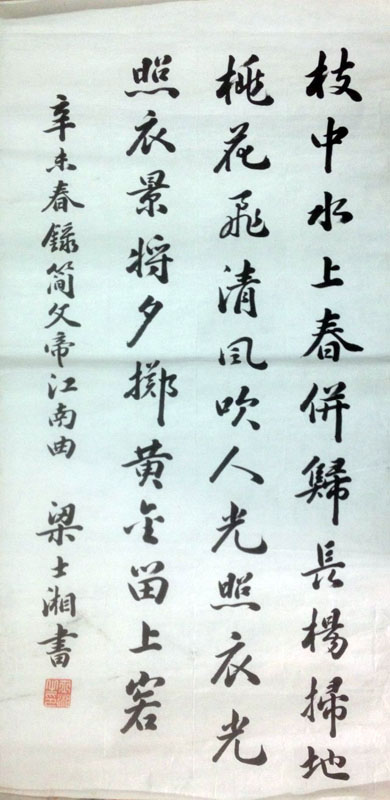 枝中水上春併歸長楊掃地
桃花飛清風吹人光照衣光
照衣景將夕擲黃金留上客
辛未春錄簡文帝江南曲 梁士湘書